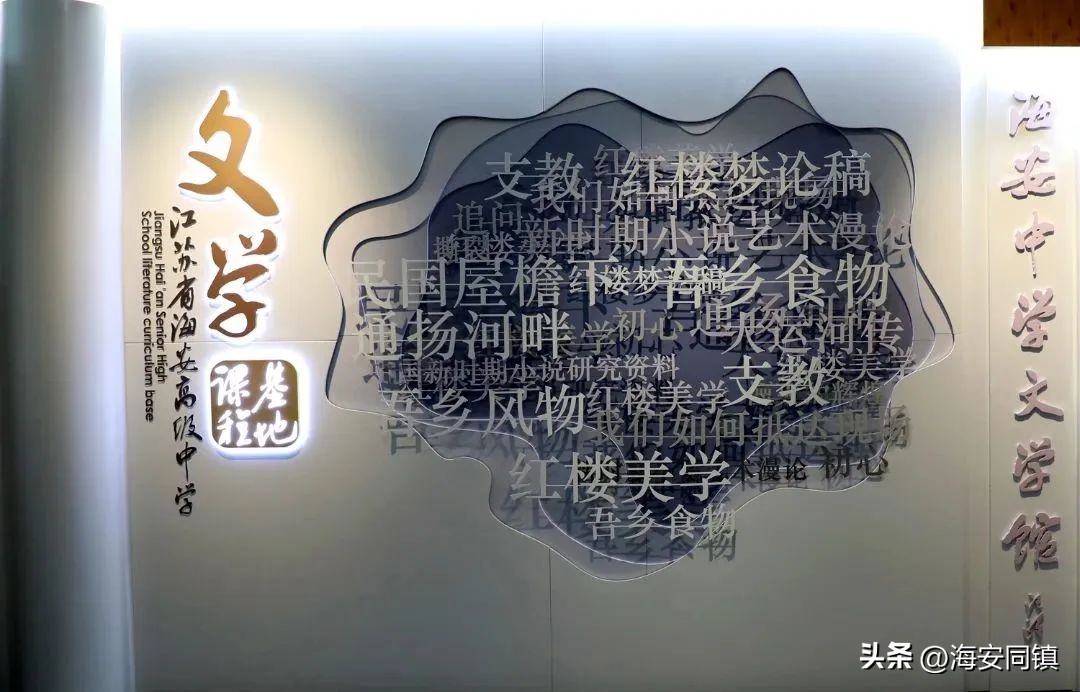 文学
课程基地
江苏省海安高级中学
Jiangsu Hai'an Senior High
School literature curriculum base
支教 红楼梦论稿
我们如何抵达现场
追问
新时期小说艺术漫
民国屋檐下 吾乡食物
红楼梦论稿
通扬河畔 学初心 追 大运河传
国新时期小说研究资料 支教 楼美学
吾乡风物 红楼美学
我们如何抵达现场
红楼美学 术漫论 初心
吾乡食物
海安中学文学馆
头条 @海安同镇